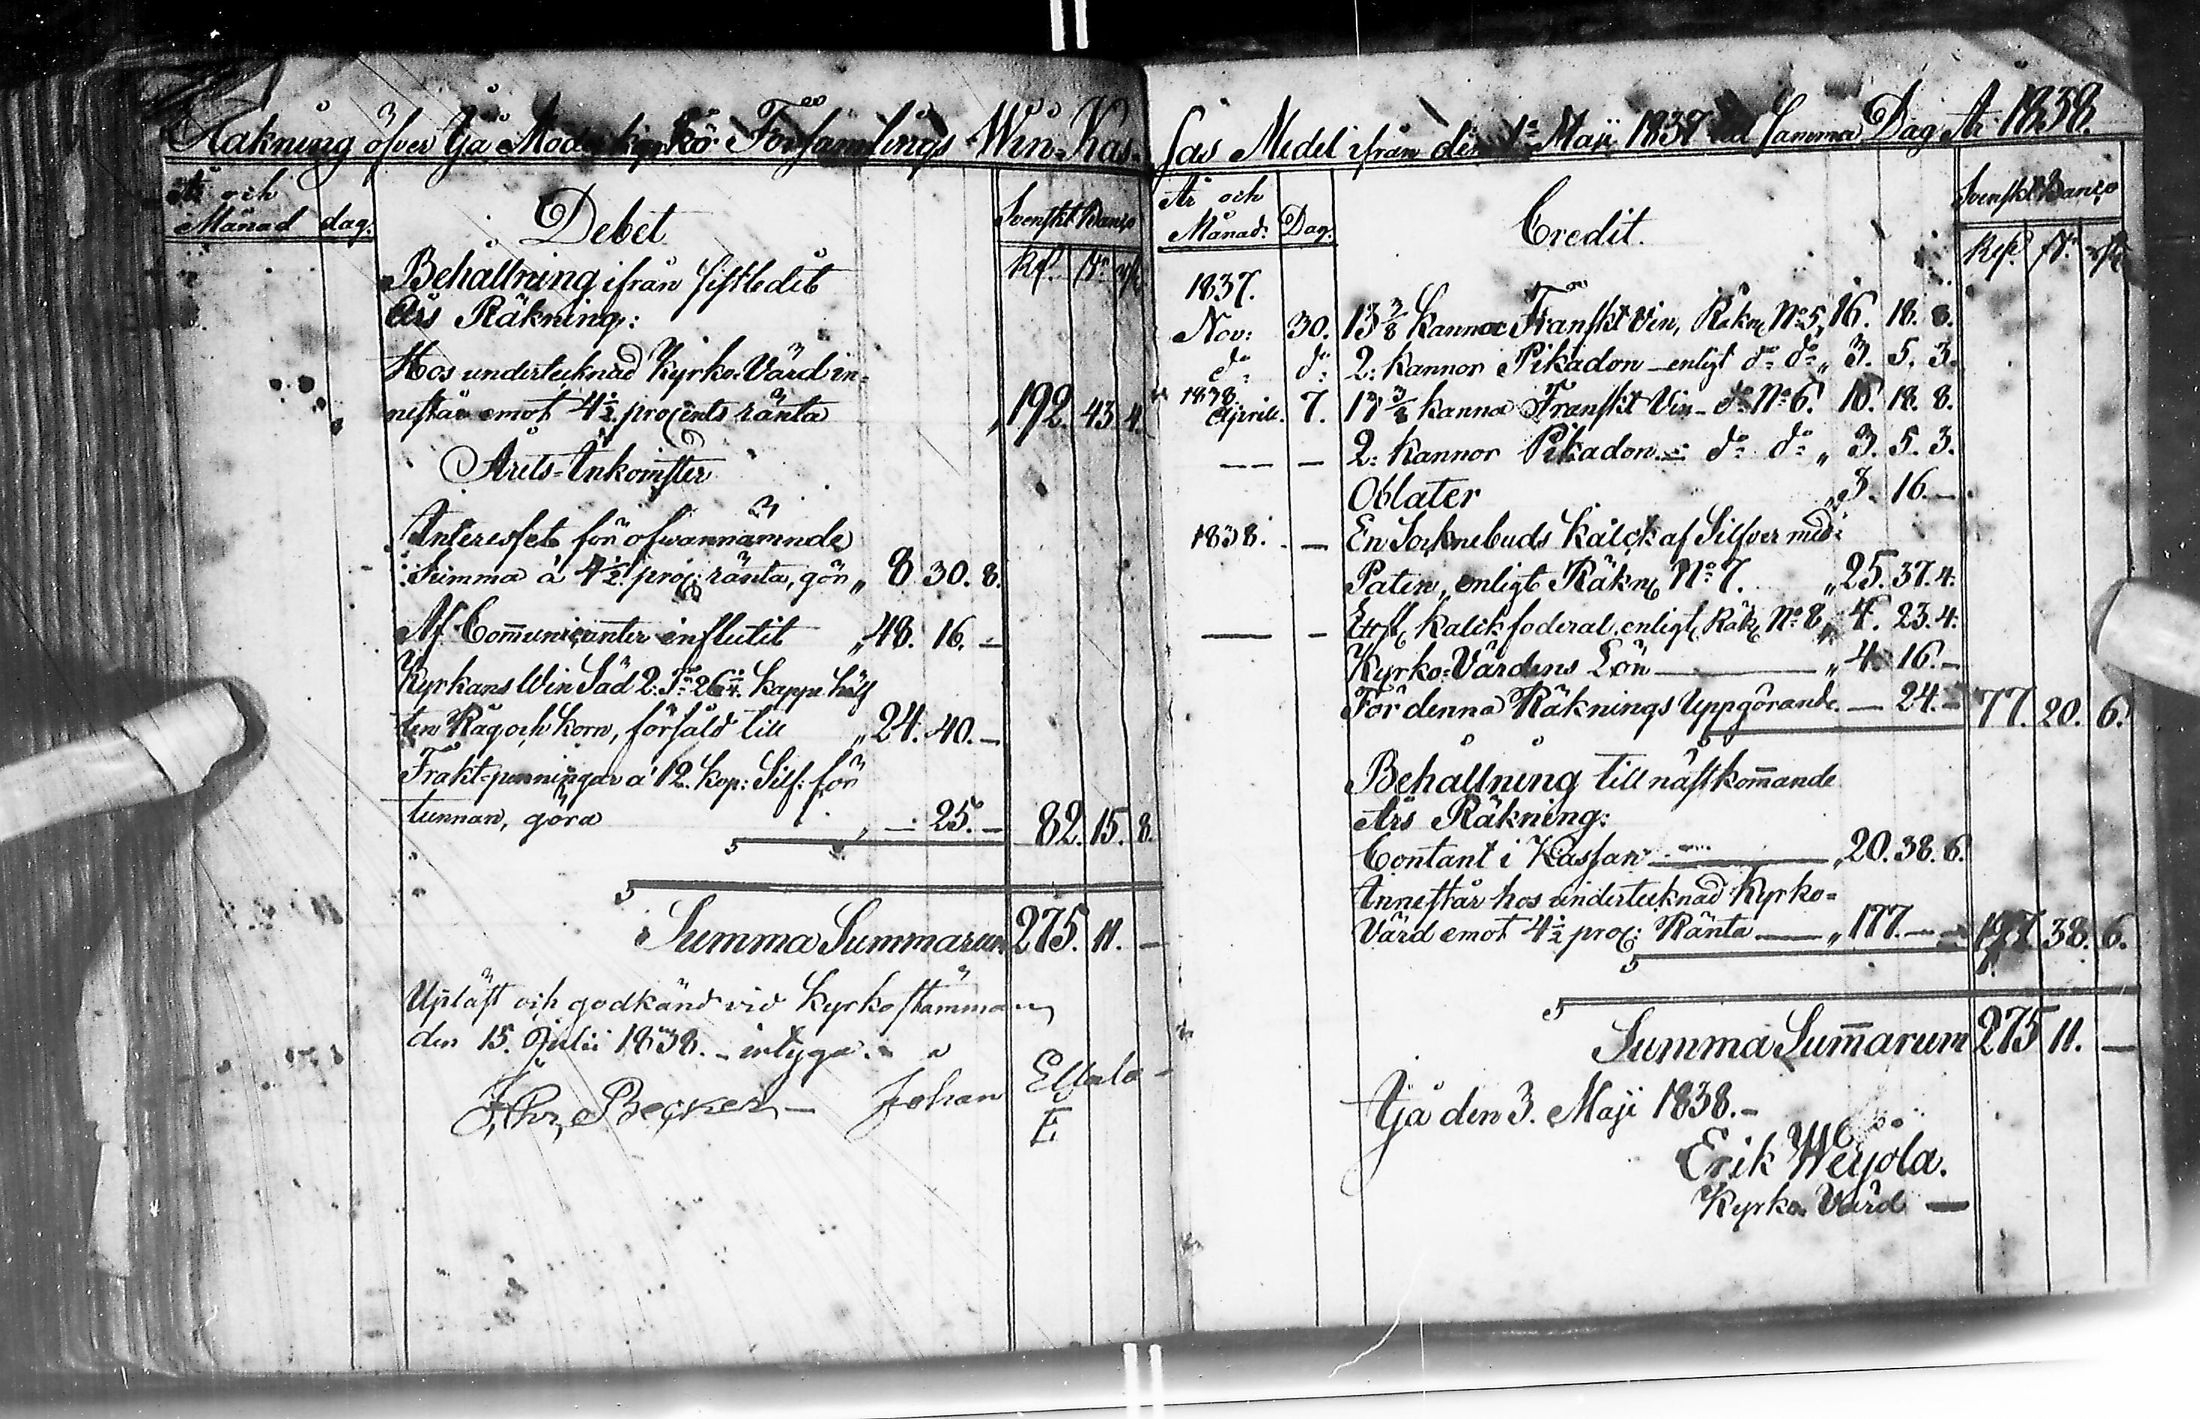 Räkning öfver Ijå Moderkyrko Församlings Win-Kas-
År och
Månad dag.
Debet
Svenskt Banco
Rf. sk. rst
Behållning ifrån sistledit
Års Räkning:
Hos undertecknad Kyrko-Värd in-
nestår emot 4½ procents ränta 192. 43. 4.
Årets-Inkomster
Interesset för ofvannämnde
Summa a 4½ proc: ränta, gör „ 8. 30. 8.
Af Communicanter influtit „ 48. 16. –
Kyrkans Win Säd 2: Tr 26¼ kappe hälf
ten Råg och Korn, försåld till „ 24. 40. –
Frakt-penningar a 12. kop: Silf: för
tunnan, göra „ – 25. – 82. 15. 8.
Summa Summarum 275. 11. –
Upläst och godkänd vid Kyrkostämman
den 15. Julii 1838. – intyga
Becker – Johan
E
sas Medel ifrån den 1a Maji 1837 till Samma Dag År 1838.
År och
Månad: Dag:
Credit.
Svenskt Banco
Rf. sk. rst
1837.
Nov: 30. 13⅜ Kannor Franskt Vin, Räkn No 5, 16. 18. 8.
do do 2: kannor Pikadon – enligt do do „ 3. 5. 3.
1838.
Aprill. 7. 13⅜ kanna Franskt Vin – do No 6. 16. 18. 8.
— – 2: Kannor Pikadon – do do „ 3. 5. 3.
Oblater „ 3. 16. –
1838. – En Socknebuds Kalck af Silfver med
Paten, enligt Räkn No 7. „ 25. 37. 4.
— – Kalckfoderal, enligt Räkn No 8, „ 4. 23. 4.
Kyrko-Värdens Lön — „ 4. 16. –
För denna Räknings Uppgörande. — 24. – 77. 20. 6.
Behållning till nästkommande
Års Räkning:
Contant i Kassan — „ 20. 38. 6.
Innestår hos undertecknad Kyrko-
Värd emot 4½ proc: Ränta — „ 177. – – 197. 38. 6.
Summa Summarum 275 11. –
Ijå den 3. Maji 1838. –
Erik Weijola.
Kyrko Värd –